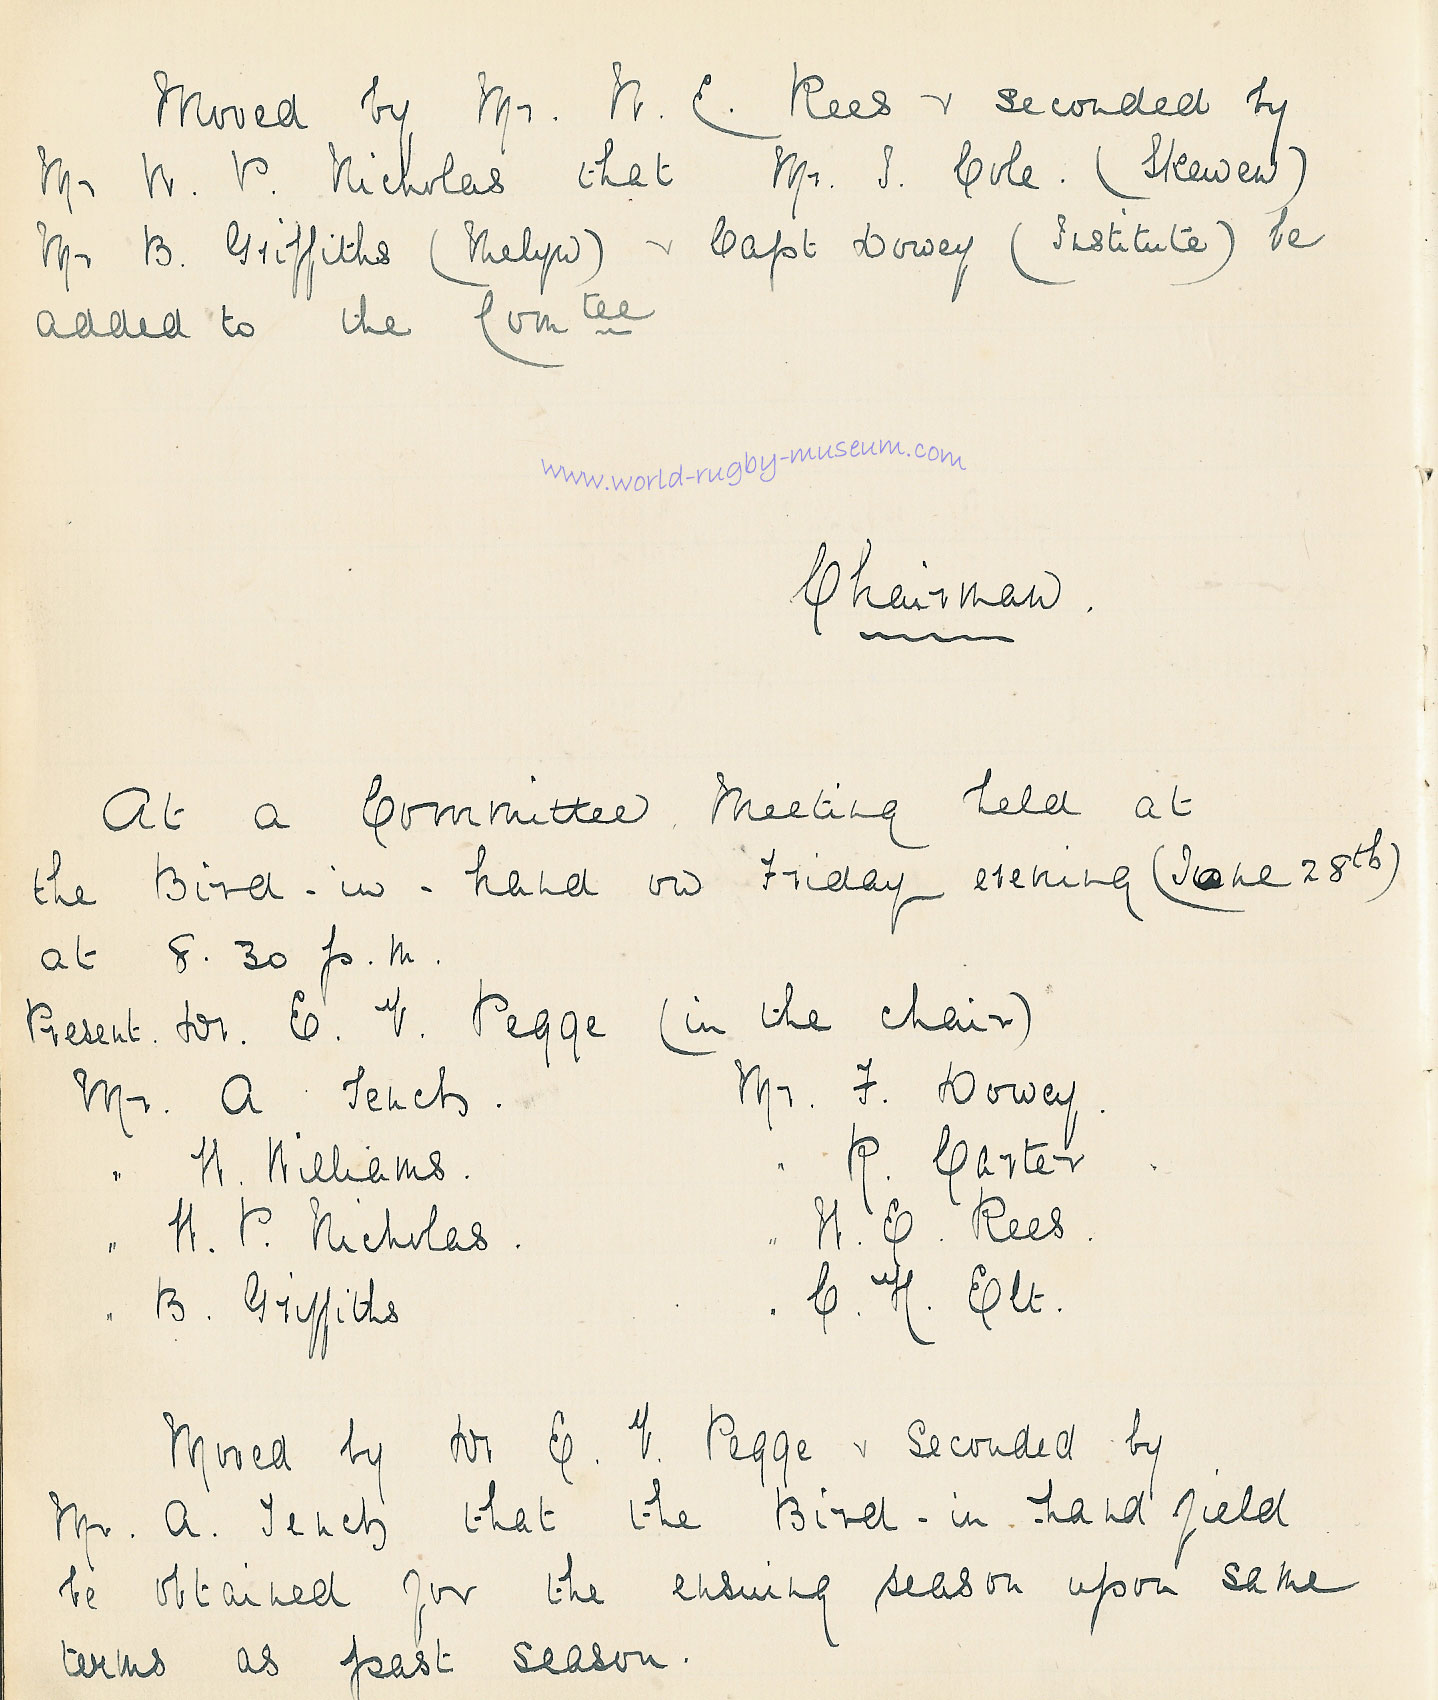 Moved by Mr. W. E. Rees & seconded by
Mr W. P. Nicholas that Mr. T. Cole. (Skewen)
Mr B. Griffiths (Melyn) & Capt Dowey (Institute) be
added to the Comtee
www.world-rugby-museum.com
Chairman.
At a Committee Meeting held at
the Bird-in-hand on Friday evening (June 28th)
at 8.30 p.m.
Present. Dr. E. V. Pegge (in the chair)
Mr. A Tench. Mr. F. Dowey.
" W. Williams. " R. Carter.
" W. P. Nicholas. " W. E. Rees.
" B. Griffiths " C. H. Elt.
Moved by Dr E. V. Pegge & Seconded by
Mr. A. Tench that the Bird-in-hand field
be obtained for the ensuing season upon same
terms as past season.